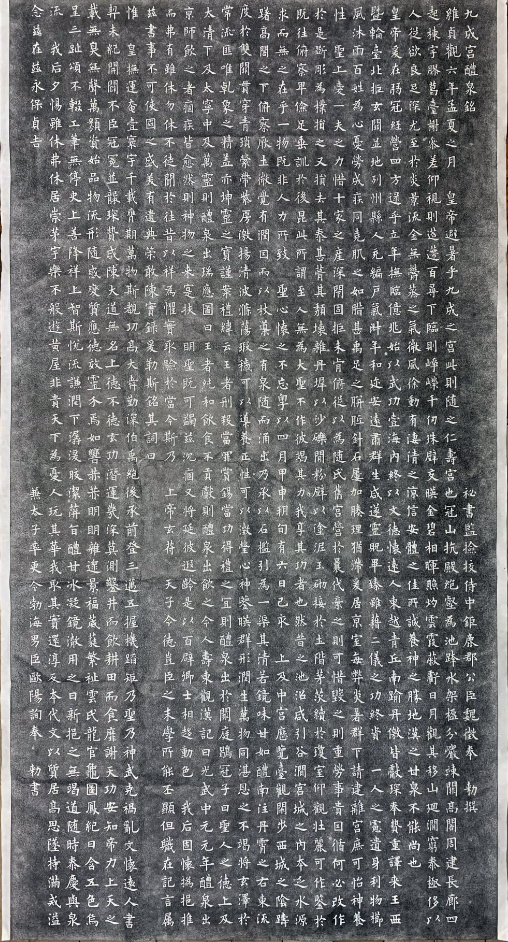 九成宮醴泉銘 祕書監檢校侍中鉅鹿郡公臣魏徵奉 勅撰
維貞觀六年孟夏之月 皇帝避暑乎九成之宮此則隨之仁壽宮也冠山抗殿絕壑為池跨水架楹分巖竦闕高閣周建長廊四
起棟宇膠葛臺榭參差仰視則迢遰百尋下臨則崢嶸千仞珠壁交暎金碧相暉照灼雲霞蔽虧日月觀其移山迴澗窮泰極侈以
人從欲良足深尤至於炎景流金無鬱蒸之氣微風徐動有淒清之涼信安體之佳所誠養神之勝地漢之甘泉不能尚也
皇帝爰在弱冠經營四方逮乎立年撫臨億兆始以武功壹海內終以文德懷遠人東越青丘南踰丹儌皆獻琛奉贄重譯來王西
暨輪臺北拒玄闕並地列州縣人充編戶氣淑年和迩安遠肅群生咸遂靈貺畢臻雖藉二儀之功終資 一人之慮遺身利物櫛
風沐雨百姓為心憂勞成疾同堯肌之如腊甚禹足之胼胝針石屢加腠理猶滯爰居京室每弊炎暑群下請建離宮庶可怡神養
性 聖上愛一夫之力惜十家之產深閉固拒未肯俯從以為隨氏舊宮營於曩代棄之則可惜毀之則重勞事貴因循何必改作
於是斲彫為樸損之又損去其泰甚葺其頹壞雜丹墀以沙礫間粉壁以塗泥玉砌接於土階茅茨續於瓊室仰觀壯麗可作鑒於
既往俯察卑儉足垂訓於後昆此所謂至人無為大聖不作彼竭其力我享其功者也然昔之池沼咸引谷澗宮城之內本乏水源
求而無之在乎一物既非人力所致 聖心懷之不忘粵以四月甲申朔旬有六日己亥 上及中宮歷覽臺觀閑步西城之陰躊
躇高閣之下俯察厥土微覺有潤因而以杖導之有泉隨而涌出乃承以石檻引為一渠其清若鏡味甘如醴南注丹霄之右東流
度於雙闕貫穿青瑣縈帶紫房激揚清波滌蕩瑕穢可以導養正性可以澂瑩心神鑒暎群形潤生萬物同湛恩之不竭將玄澤於
常流匪唯乾象之精蓋亦坤靈之寶謹案禮緯云王者刑殺當罪賞錫當功得禮之宜則醴泉出於闕庭鶡冠子曰聖人之德上及
太清下及太寧中及萬靈則醴泉出瑞應圖曰王者純和飲食不貢獻則醴泉出飲之令人壽東觀漢記曰光武中元元年醴泉出
京師飲之者痼疾皆愈然則神物之來寔扶 明聖既可蠲茲沉痼又將延彼遐齡是以百辟卿士相趨動色 我后固懷撝挹推
而弗有雖休勿休不徒聞於往昔以祥為懼實取驗於當今斯乃 上帝玄符 天子令德豈臣之末學所能丕顯但職在記言屬
茲書事不可使國之盛美有遺典策敢陳實錄爰勒斯銘其詞曰
惟 皇撫運奄壹寰宇千載膺期萬物斯覩功高大舜勤深伯禹絕後承前登三邁五握機蹈矩乃聖乃神武克禍亂文懷遠人書
契未紀開闢不臣冠冕並襲琛贄咸陳大道無名上德不德玄功潛運幾深莫測鑿井而飲耕田而食靡謝天功安知帝力上天之
載無臭無聲萬類資始品物流形隨感變質應德效靈介焉如響赫赫明明雜遝景福葳蕤繁祉雲氏龍官龜圖鳳紀日含五色烏
呈三趾頌不輟工筆無停史上善降祥上智斯悅流謙潤下潺湲皎潔蓱旨醴甘冰凝鏡澈用之日新挹之無竭道隨時泰慶與泉
流 我后夕惕雖休弗休居崇茅宇樂不般遊黃屋非貴天下為憂人玩其華我取其實還淳反本代文以質居高思墜持滿戒溢
念茲在茲永保貞吉 兼太子率更令勃海男臣歐陽詢奉 勅書